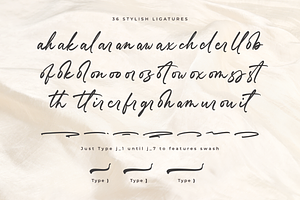 36 STYLISH LIGATURES
ah ak al ar an aw ax ch el er ll ob
of ok ol on oo or os ot ow ox om ss st
th tt ir er fr gr oh am ur ou it
Just Type j_1 until j_7 to features swash
Type } Type } Type }